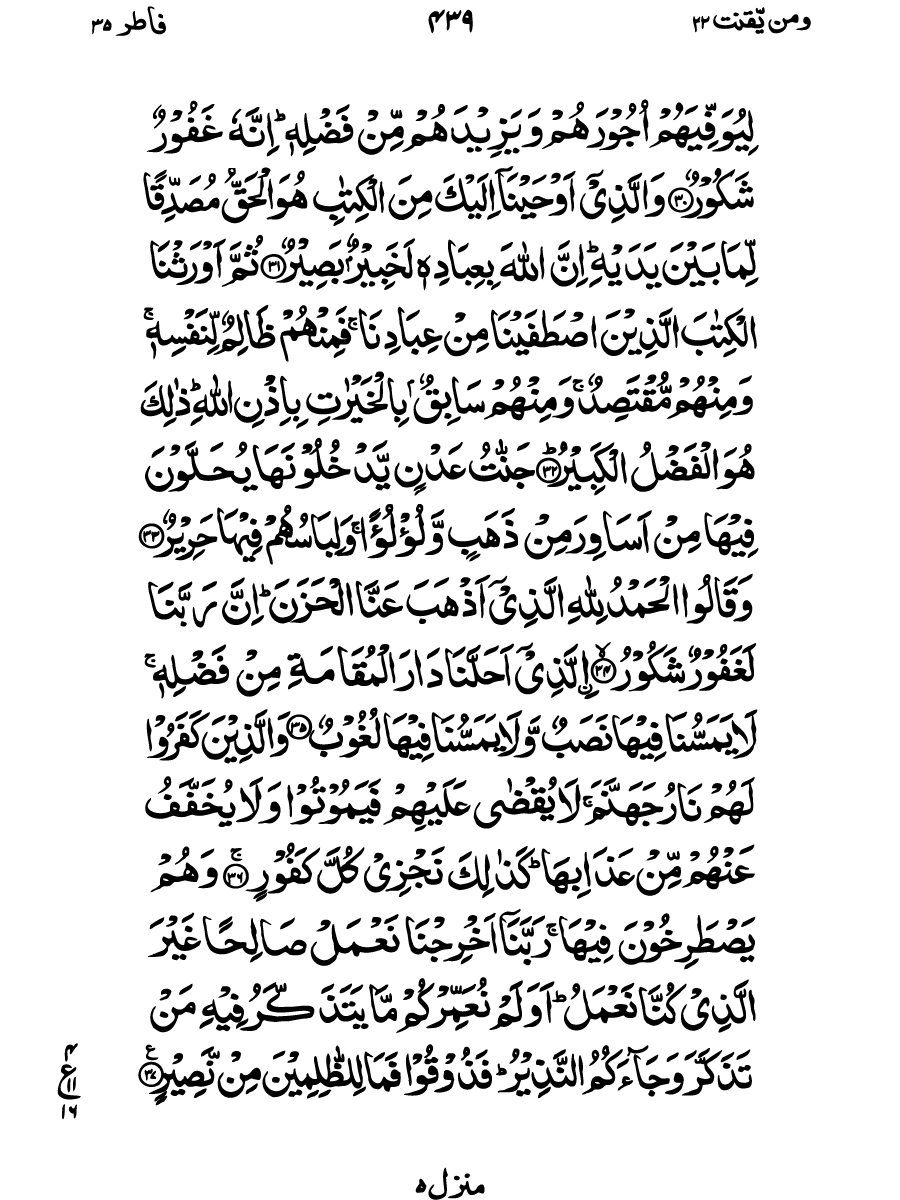 ومن يّقنت ٢٢
٤٣٩
فاطر ٣٥
لِيُوَفِّيَهُمْ اُجُوْرَهُمْ وَيَزِيْدَهُمْ مِّنْ فَضْلِهٖ ؕ اِنَّهٗ غَفُوْرٌ
شَكُوْرٌ ﴿٣٠﴾ وَالَّذِيْۤ اَوْحَيْنَاۤ اِلَيْكَ مِنَ الْكِتٰبِ هُوَ الْحَقُّ مُصَدِّقًا
لِّمَا بَيْنَ يَدَيْهِ ؕ اِنَّ اللّٰهَ بِعِبَادِهٖ لَخَبِيْرٌۢ بَصِيْرٌ ﴿٣١﴾ ثُمَّ اَوْرَثْنَا
الْكِتٰبَ الَّذِيْنَ اصْطَفَيْنَا مِنْ عِبَادِنَا ۚ فَمِنْهُمْ ظَالِمٌ لِّنَفْسِهٖ ۚ
وَمِنْهُمْ مُّقْتَصِدٌ ۚ وَمِنْهُمْ سَابِقٌۢ بِالْخَيْرٰتِ بِاِذْنِ اللّٰهِ ؕ ذٰلِكَ
هُوَ الْفَضْلُ الْكَبِيْرُ ؕ ﴿٣٢﴾ جَنّٰتُ عَدْنٍ يَّدْخُلُوْنَهَا يُحَلَّوْنَ
فِيْهَا مِنْ اَسَاوِرَ مِنْ ذَهَبٍ وَّلُؤْلُؤًا ۚ وَلِبَاسُهُمْ فِيْهَا حَرِيْرٌ ﴿٣٣﴾
وَقَالُوا الْحَمْدُ لِلّٰهِ الَّذِيْۤ اَذْهَبَ عَنَّا الْحَزَنَ ؕ اِنَّ رَبَّنَا
لَغَفُوْرٌ شَكُوْرٌ ۙ ﴿٣٤﴾ اِۨلَّذِيْۤ اَحَلَّنَا دَارَ الْمُقَامَةِ مِنْ فَضْلِهٖ ۚ
لَا يَمَسُّنَا فِيْهَا نَصَبٌ وَّلَا يَمَسُّنَا فِيْهَا لُغُوْبٌ ﴿٣٥﴾ وَالَّذِيْنَ كَفَرُوْا
لَهُمْ نَارُ جَهَنَّمَ ۚ لَا يُقْضٰى عَلَيْهِمْ فَيَمُوْتُوْا وَلَا يُخَفَّفُ
عَنْهُمْ مِّنْ عَذَابِهَا ؕ كَذٰلِكَ نَجْزِيْ كُلَّ كَفُوْرٍ ۚ ﴿٣٦﴾ وَهُمْ
يَصْطَرِخُوْنَ فِيْهَا ۚ رَبَّنَاۤ اَخْرِجْنَا نَعْمَلْ صَالِحًا غَيْرَ
الَّذِيْ كُنَّا نَعْمَلُ ؕ اَوَلَمْ نُعَمِّرْكُمْ مَّا يَتَذَكَّرُ فِيْهِ مَنْ
تَذَكَّرَ وَجَآءَكُمُ النَّذِيْرُ ؕ فَذُوْقُوْا فَمَا لِلظّٰلِمِيْنَ مِنْ نَّصِيْرٍ ﴿٣٧﴾
٤
ع
١١
١٦
منزل ٥